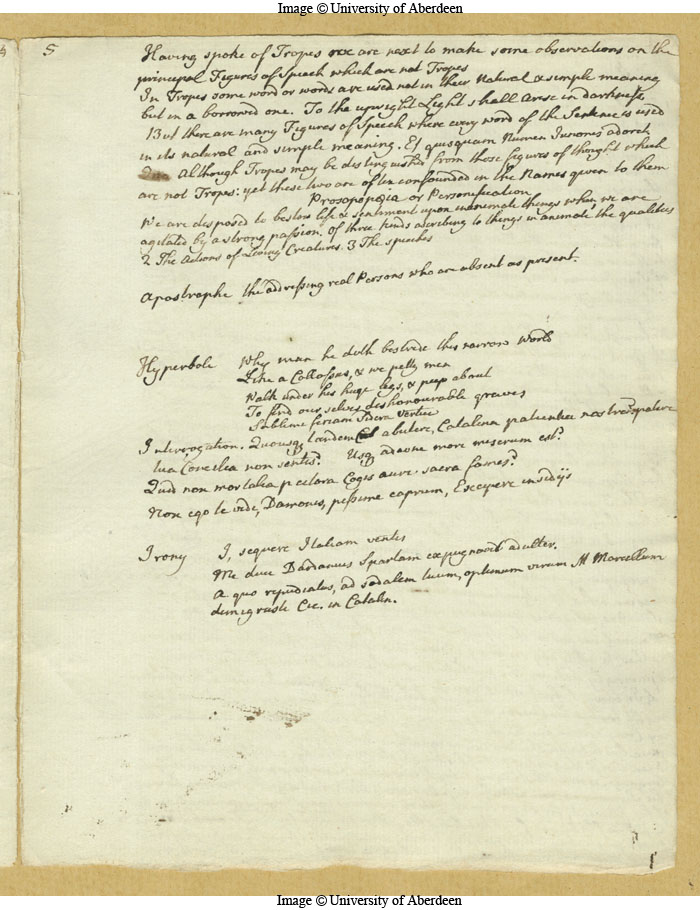 Image © University of Aberdeen
5
Having spoke of Tropes we are next to make some observations on the
principal Figures of Speech which are not Tropes
In Tropes some word or words are used not in their Natural & simple meaning
but in a borrowed one. To the upright Light shall arise in darkness
But there are many Figures of Speech where every word of the Sentence is used
in its natural and simple meaning. Et quisquam Numen Junonis adoret
Although Tropes may be distinguished from those figures of thought which
are not Tropes: yet these two are often confounded in the Names given to them
Prosopopœia or Personification
We are disposed to bestow life & sentiment upon inanimate things when we are
agitated by a strong passion. of three kinds ascribing to things inanimate the qualities
2 The Actions of Living Creatures. 3 The speeches
Apostrophe the addressing real Persons who are absent as present.
Hyperbole Why man he doth bestride this narrow World
Like a Collossus, & we petty men
Walk under his huge legs, & peep about
To find our selves dishonourable graves
Sublime feriam Sidera Vertice
Interrogation. Quousq tandem abutere, Catalina patientia nostra
tua Concilia non sentis? Usq adeone mori miserum est?
Quid non mortalia pectora Cogis auri sacra fames?
Non ego te vidi, Damonis, pessime caprum, Excipere insidijs
Irony I, sequere Italiam ventis
Me duce Dardanus Spartam expugnavit adulter.
A quo repudiatus, ad sodalem tuum, optimum virum M Marcellum
demigrasti Cic. in Catalin.
Image © University of Aberdeen